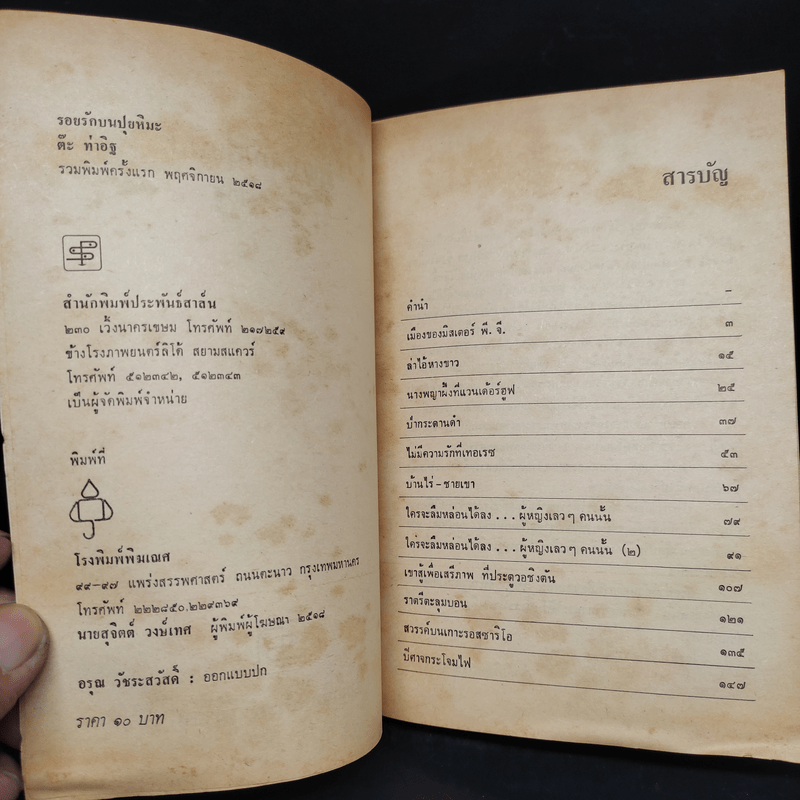 รอยรักบนปุยหิมะ
ต๊ะ ท่าอิฐ
รวมพิมพ์ครั้งแรก พฤศจิกายน ๒๕๑๘
สำนักพิมพ์ประพันธ์สาส์น
๒๓๐ เวิ้งนาครเขษม โทรศัพท์ ๒๑๗๒๕๙
ข้างโรงภาพยนตร์ลิโด้ สยามสแควร์
โทรศัพท์ ๕๑๒๓๔๒, ๕๑๒๓๔๓
เป็นผู้จัดพิมพ์จำหน่าย
พิมพ์ที่
โรงพิมพ์พิฆเณศ
๙๙-๙๗ แพร่งสรรพศาสตร์ ถนนตะนาว กรุงเทพมหานคร
โทรศัพท์ ๒๒๒๘๕๐,๒๒๙๓๖๙
นายสุจิตต์ วงษ์เทศ ผู้พิมพ์ผู้โฆษณา ๒๕๑๘
อรุณ วัชระสวัสดิ์ : ออกแบบปก
ราคา ๑๐ บาท
สารบัญ
คำนำ –
เมืองของมิสเตอร์ พี. จี. ๓
ล่าไอ้หางขาว ๑๕
นางพญาผึ้งที่แวนเด้อร์ฮูฟ ๒๕
บ้ำกระดานดำ ๓๗
ไม่มีความรักที่เทอเรซ ๕๓
บ้านไร่-ชายเขา ๖๗
ใครจะลืมหล่อนได้ลง ... ผู้หญิงเลว ๆ คนนั้น ๗๙
ใครจะลืมหล่อนได้ลง ... ผู้หญิงเลว ๆ คนนั้น (๒) ๙๑
เขาสู้เพื่อเสรีภาพ ที่ประตูวอชิงตัน ๑๐๗
ราตรีตะลุมบอน ๑๒๑
สวรรค์บนเกาะรอสซาริโอ ๑๓๕
ปีศาจกระโจมไฟ ๑๔๗